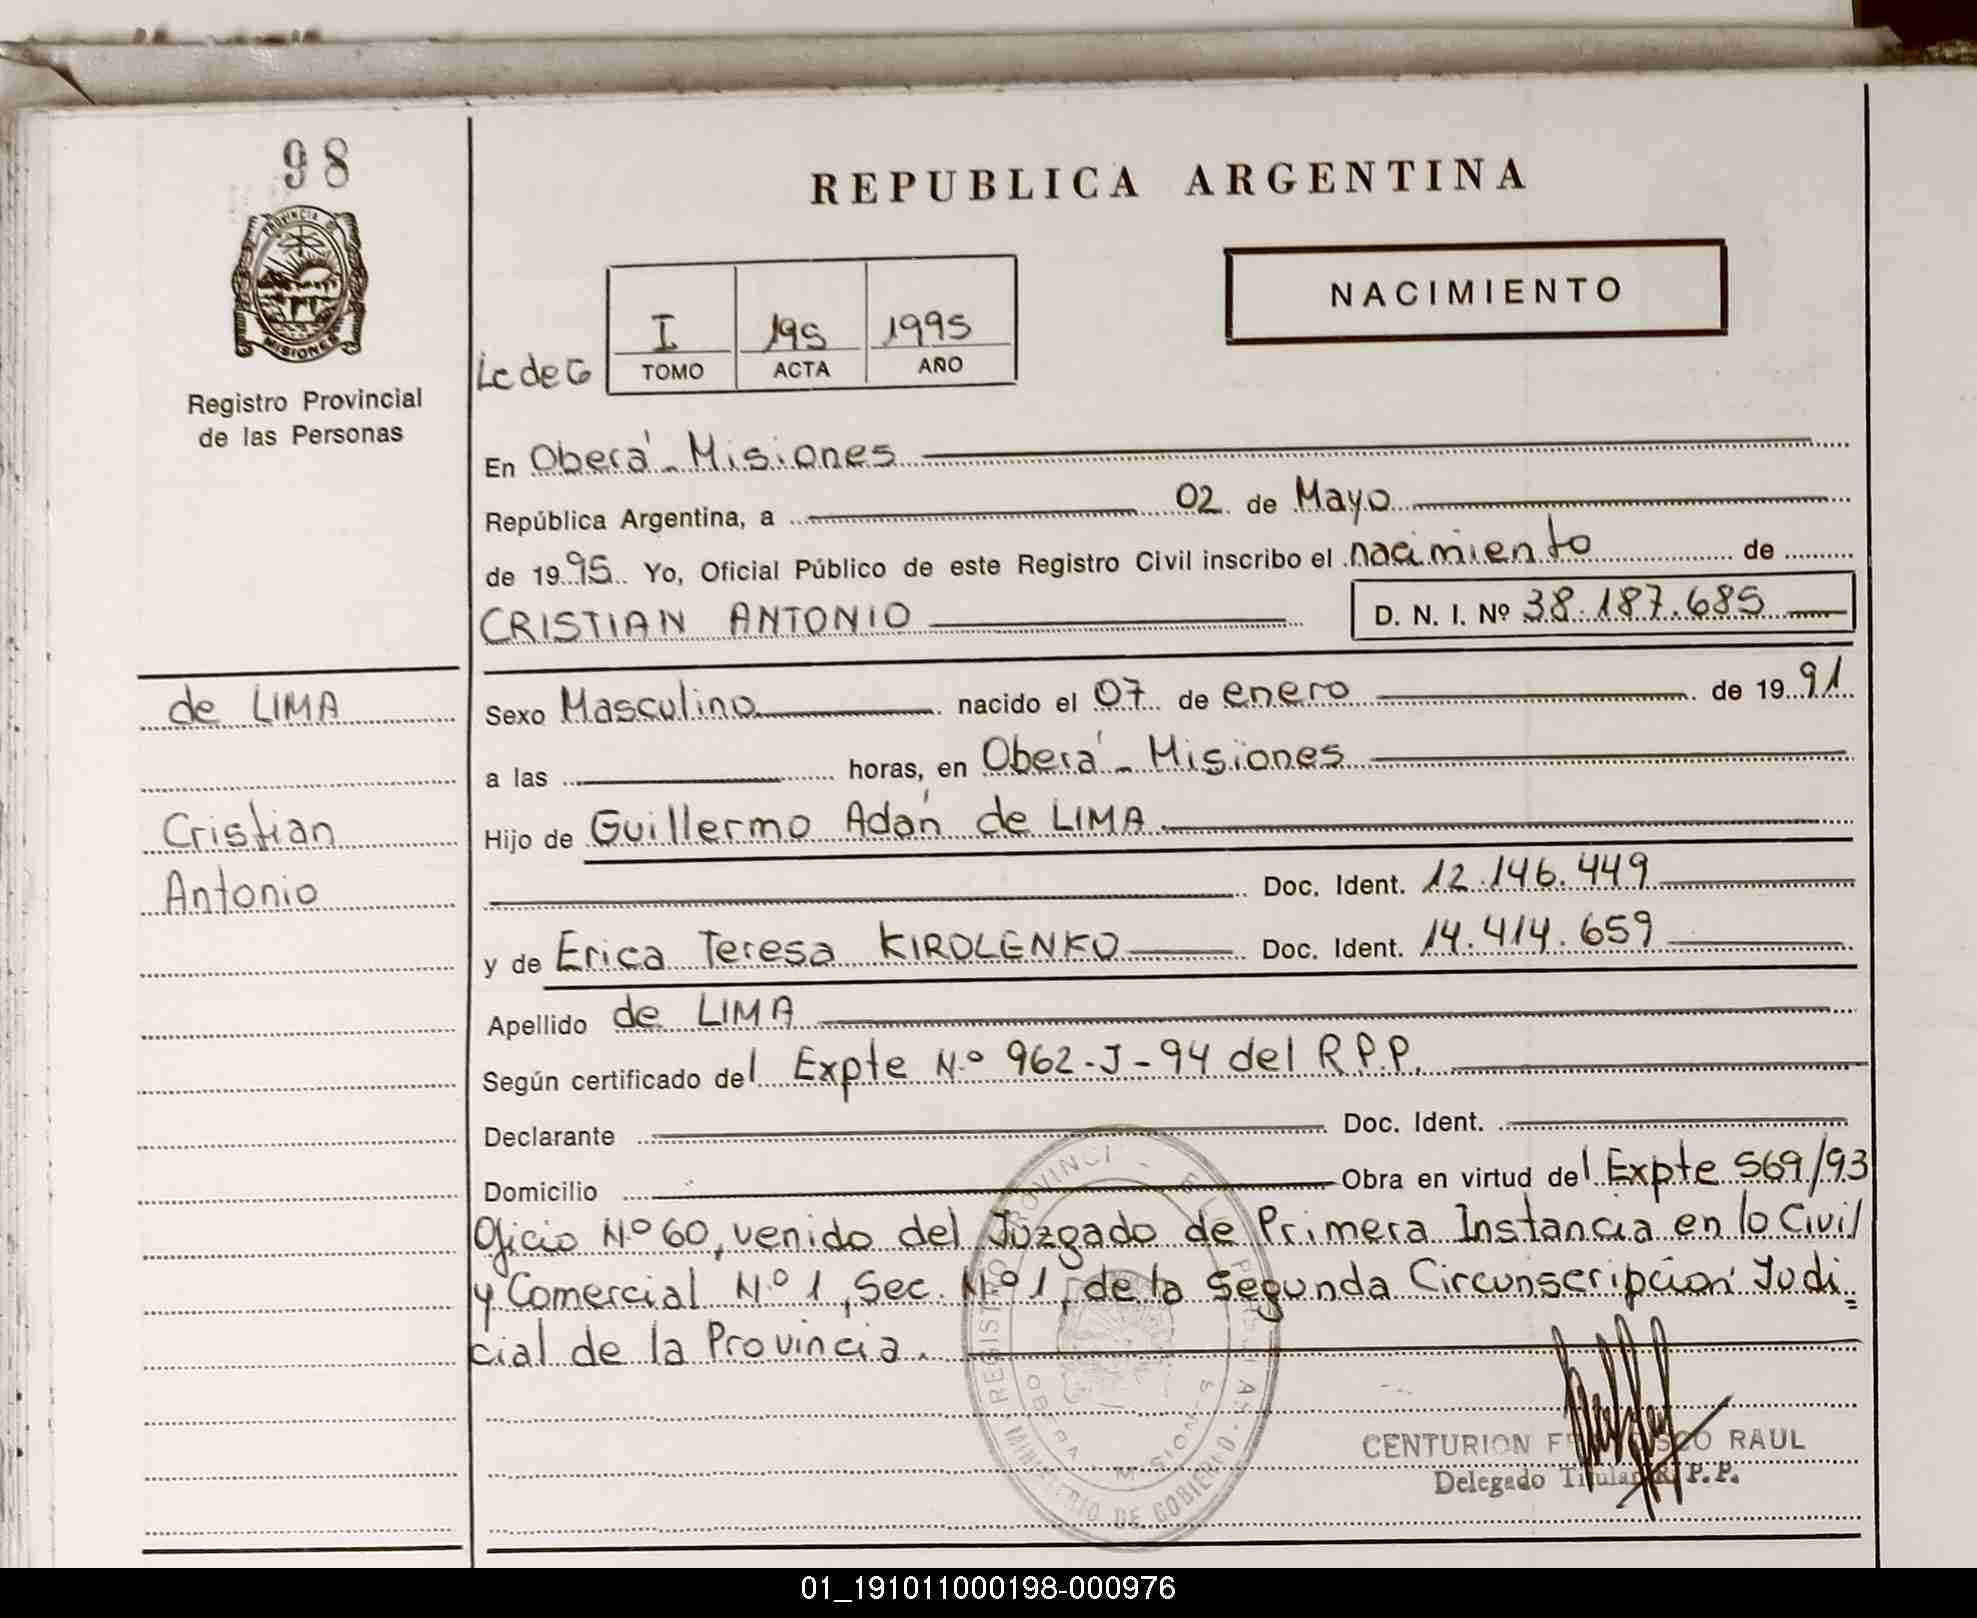 98
PROVINCIA DE
MISIONES
Registro Provincial
de las Personas
REPUBLICA ARGENTINA
NACIMIENTO
I 195 1995
TOMO ACTA AÑO
En Oberá - Misiones
República Argentina, a 02 de Mayo
de 1995 Yo, Oficial Público de este Registro Civil inscribo el nacimiento de
CRISTIAN ANTONIO D. N. I. Nº 38.187.685
de LIMA
Cristian
Antonio
Sexo Masculino nacido el 07 de enero de 1991
a las horas, en Oberá - Misiones
Hijo de Guillermo Adán de LIMA
Doc. Ident. 12.146.449
y de Erica Teresa KIROLENKO Doc. Ident. 14.414.659
Apellido de LIMA
Según certificado del Expte N.º 962-J-94 del R.P.P.
Declarante Doc. Ident.
Domicilio Obra en virtud del Expte 569/93
Oficio N.º 60, venido del Juzgado de Primera Instancia en lo Civil
y Comercial N.º 1, Sec. N.º 1, de la Segunda Circunscripción Judi=
cial de la Provincia.
OBERA - MISIONES
MINISTERIO DE GOBIERNO
CENTURION RAUL
Delegado Titular R.P.P.
01_191011000198-000976